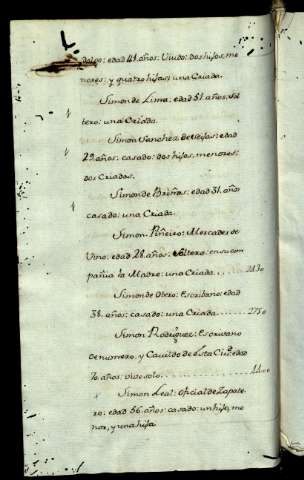 dalgo: edad 41. años: Viudo: dos hijos, me
nores: y quatro hijas: una Criada.
Simon de Lema: edad 51. años: Sol
tero: una Criada.
Simon Sanchez de Seijas: edad
29. años: casado: dos hijos, menores:
dos Criadas.
Simon de Briñas: edad 31. años
casado: una Criada.
Simon Piñeiro: Mercader de
Vino: edad 28. años: Soltero: en su com
pañia la Madre: una Criada
Simon de Otero: Escribano: edad
38. años: casado: una Criada 2750
Simon Rodriguez: Escrivano
de numero, y Cavildo de esta Ciud. edad
70 años: vive solo
Simon Leal: oficial de Zapate
ro: edad 56. años: casado: un hijo, me
nor, y una hija